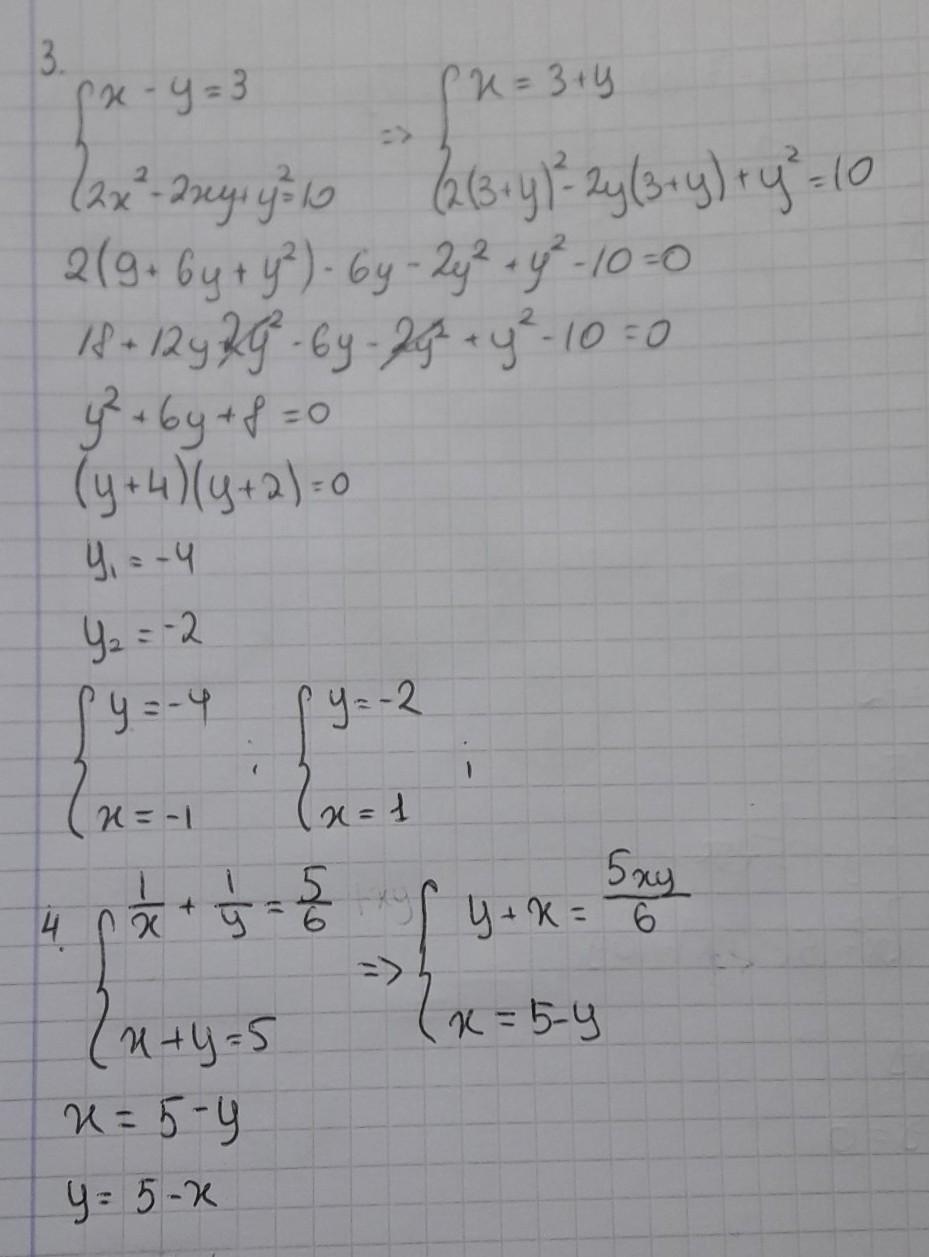 3.
{ x - y = 3 => { x = 3+y
{ 2x² - 2xy + y² = 10 { 2(3+y)² - 2y(3+y) + y² = 10
2(9 + 6y + y²) - 6y - 2y² + y² - 10 = 0
18 + 12y + 2y² - 6y - 2y² + y² - 10 = 0
y² + 6y + 8 = 0
(y+4)(y+2) = 0
y₁ = -4
y₂ = -2
{ y = -4 ; { y = -2 ;
{ x = -1 { x = 1
4. { 1/x + 1/y = 5/6 => { y + x = 5xy/6
{ x + y = 5 { x = 5-y
x = 5 - y
y = 5 - x